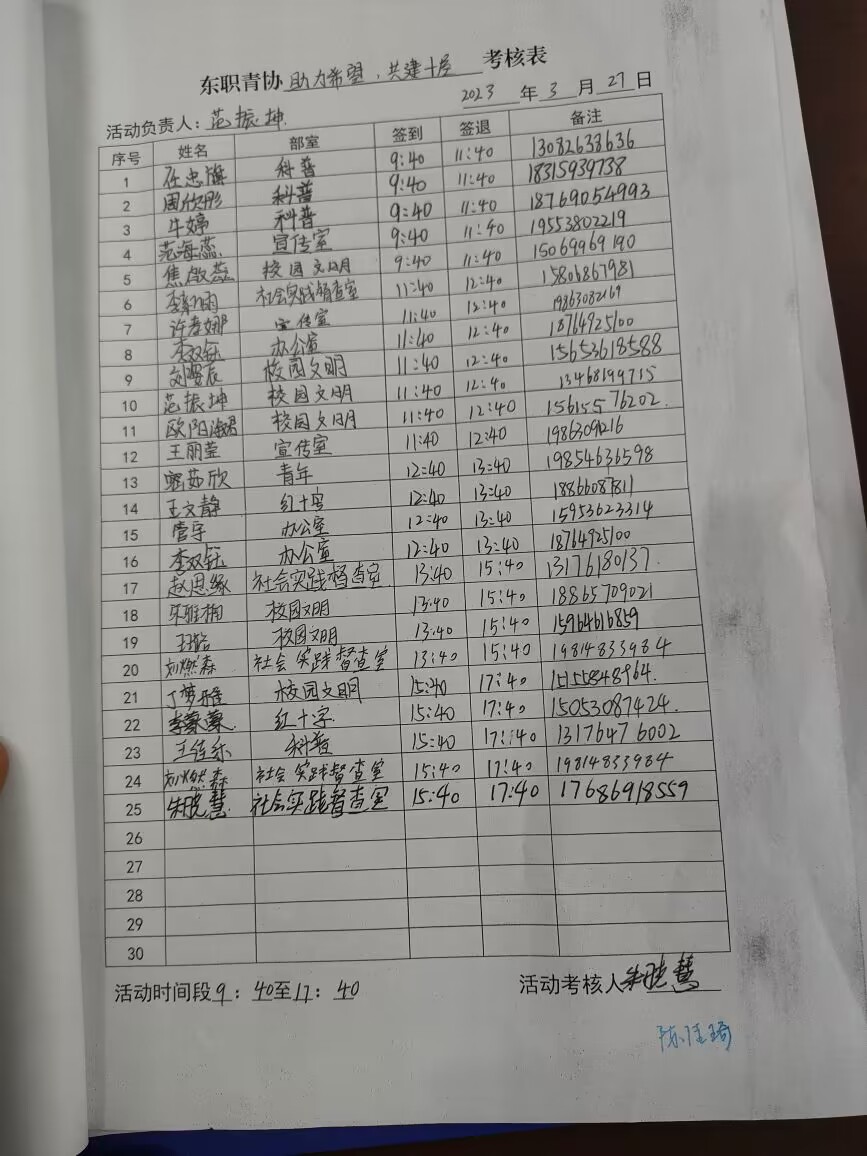 东职青协 助力希望,共建十层 考核表
2023 年 3 月 27 日
活动负责人:范振坤
序号 姓名 部室 签到 签退 备注
1 任忠旗 科普 9:40 11:40 13082638636
2 周欣彤 科普 9:40 11:40 18315939738
3 牛婷 科普 9:40 11:40 18769054993
4 范海蕊 宣传室 9:40 11:40 19553802219
5 焦敬蕊 校园文明 9:40 11:40 15069969190
6 社会实践督查室 11:40 12:40 15806867981
7 许孝娜 宣传室 11:40 12:40 19863082169
8 李双钰 办公室 11:40 12:40 18764925100
9 校园文明 11:40 12:40 15653618588
10 范振坤 校园文明 11:40 12:40 13468199715
11 欧阳淑君 校园文明 11:40 12:40 15615576202
12 王丽莹 宣传室 11:40 12:40 19863091216
13 青年 12:40 13:40 19854636598
14 王文静 红十字 12:40 13:40 18866087811
15 管宇 办公室 12:40 13:40 15953623314
16 李双钰 办公室 12:40 13:40 18764925100
17 赵思缘 社会实践督查室 13:40 15:40 13176180137
18 朱雅楠 校园文明 13:40 15:40 18865709021
19 校园文明 13:40 15:40 15964616859
20 刘燃森 社会实践督查室 13:40 15:40 19814833984
21 丁梦雅 校园文明 15:40 17:40 15155848964
22 李蒙蒙 红十字 15:40 17:40 15053087424
23 王佳乐 科普 15:40 17:40 13176476002
24 刘燃森 社会实践督查室 15:40 17:40 19814833984
25 朱晓慧 社会实践督查室 15:40 17:40 17686918559
26
27
28
29
30
活动时间段9:40至17:40 活动考核人 朱晓慧
陈佳琦